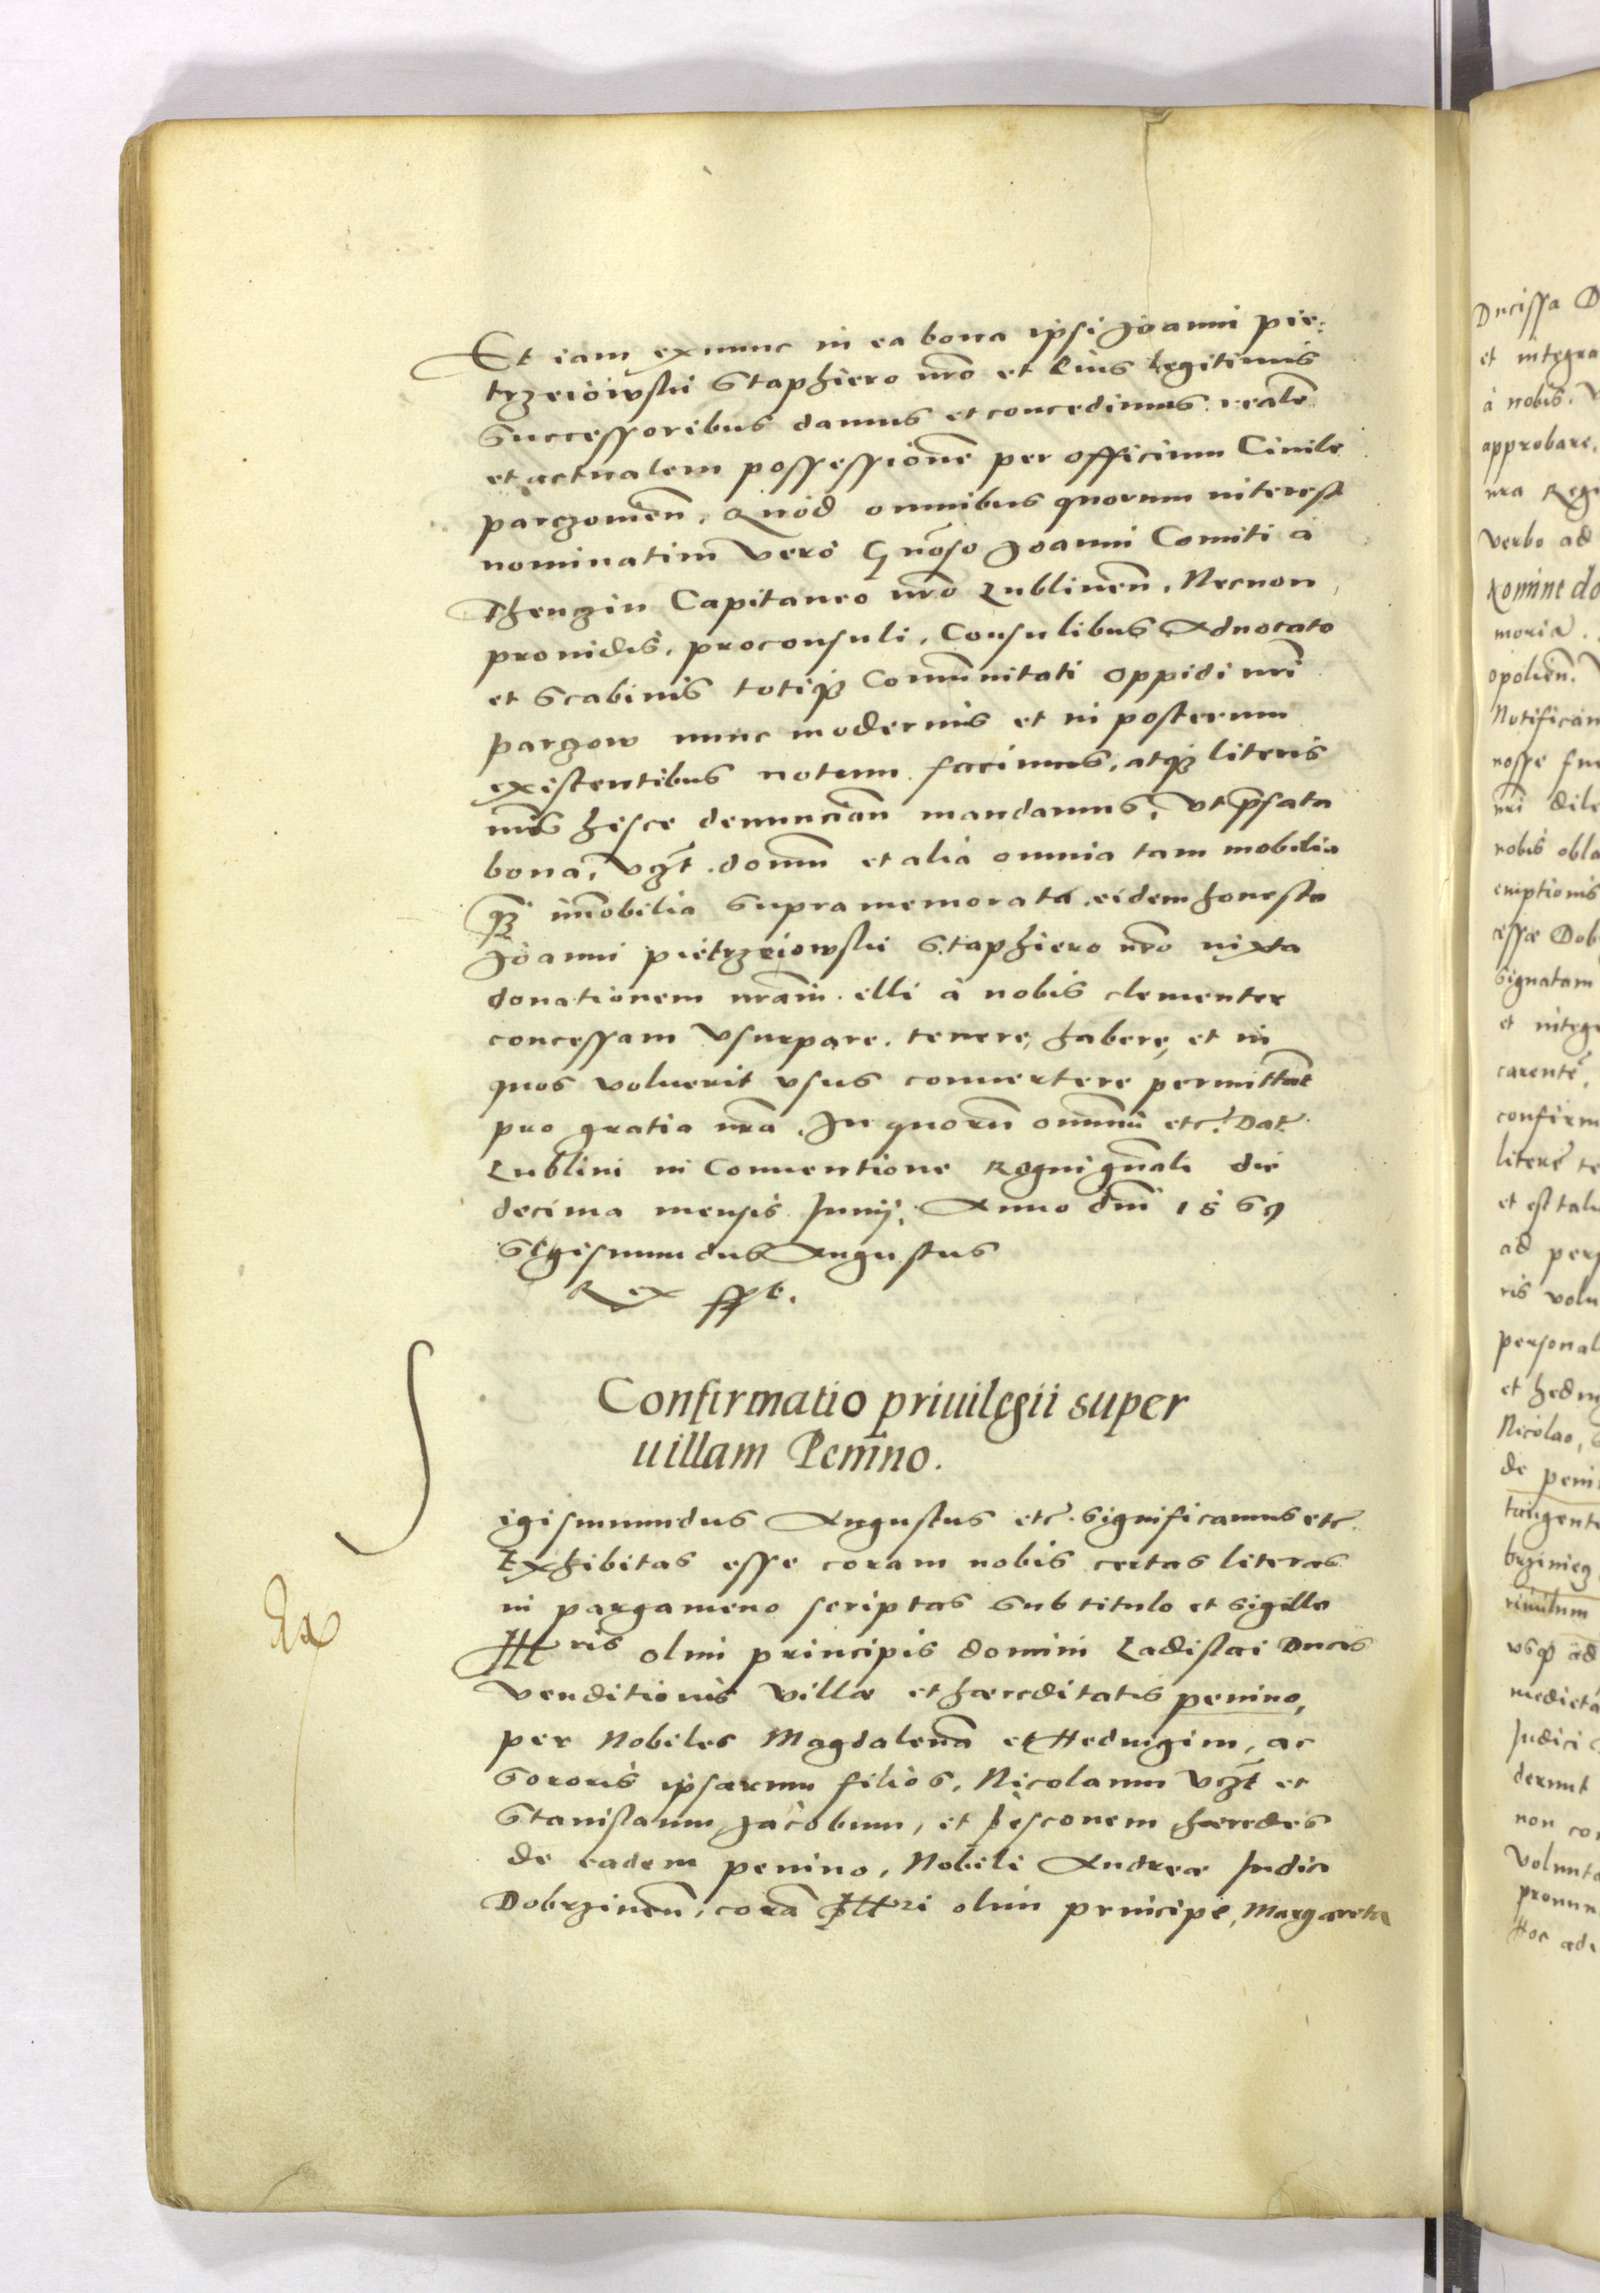 Et iam ex nunc in ea bona ipsi Joanni pie:
trzeiowski Staphiero nro et eius legitimis
Successoribus damus et concedimus realem
et actualem possessionē per officium Ciuile
parczouien̄. Quod omnibus quorum interest
nominatim vero Gnōso Joanni Comiti à
Thenczin Capitaneo nrō Lublinen̄. Necnon
prouidis, proconsuli, Consulibus Aduocato
et Scabinis totiqȝ Com̄unitati oppidi nrī
parczow nunc modernis et in posterum
existentibus notum facimus, atqȝ literis
nrīs hisce denuncian̄ mandamus, vt p̄fata
bona, vȝt domū et alia omnia tam mobilia
qȝ im̄obilia supramemorata eidem honesto
Joanni pietrzeiowski Staphiero nrō iuxta
donationem nrām illi à nobis clementer
concessam vsurpare, tenere, habere, et in
quos voluerit vsus conuertere permittat
pro gratia nrā. In quorū omniū etc̄. Dat̄
Lublini in Conuentione Regni gn̄ali die
decima mensis Junij. Anno dn̄i 1569
Sigismundus Augustus
Rex sst.
Confirmatio priuilegii super
uillam Penino.
S
igismundus Augustus etc̄. significamus etc̄.
Exhibitas esse coram nobis certas literas
in pargameno scriptas sub titulo et sigillo
Illris olim principis domini Ladislai Ducis
venditionis villæ et hæreditatis penino,
per Nobiles Magdalenā et Heduigim, ac
Sororis ipsarum filios, Nicolaum vȝt et
Stanislaum Jacobum, et pesconem hæredes
de eadem penino, Nobili Andreæ Judici
Dobrzinen̄, corā Illri olim principe, Margareta
Ducissa D
et integra
à nobis
approbare,
nra Regi
verbo ad
Nomine do
moria.
opolien̄.
Notifican
nosse fu
nri dile
nobis obla
emptionis
essæ Dob
signatam
et integr
carentē,
confirm
literē te
et est tal
ad perp
ris volu
personal
et hedu
Nicolao,
de peni
tangent
brzinieg
riuulum
vsqȝ ad
medieta
Judici
derunt
non co
Volunta
pronun
Hoc ad